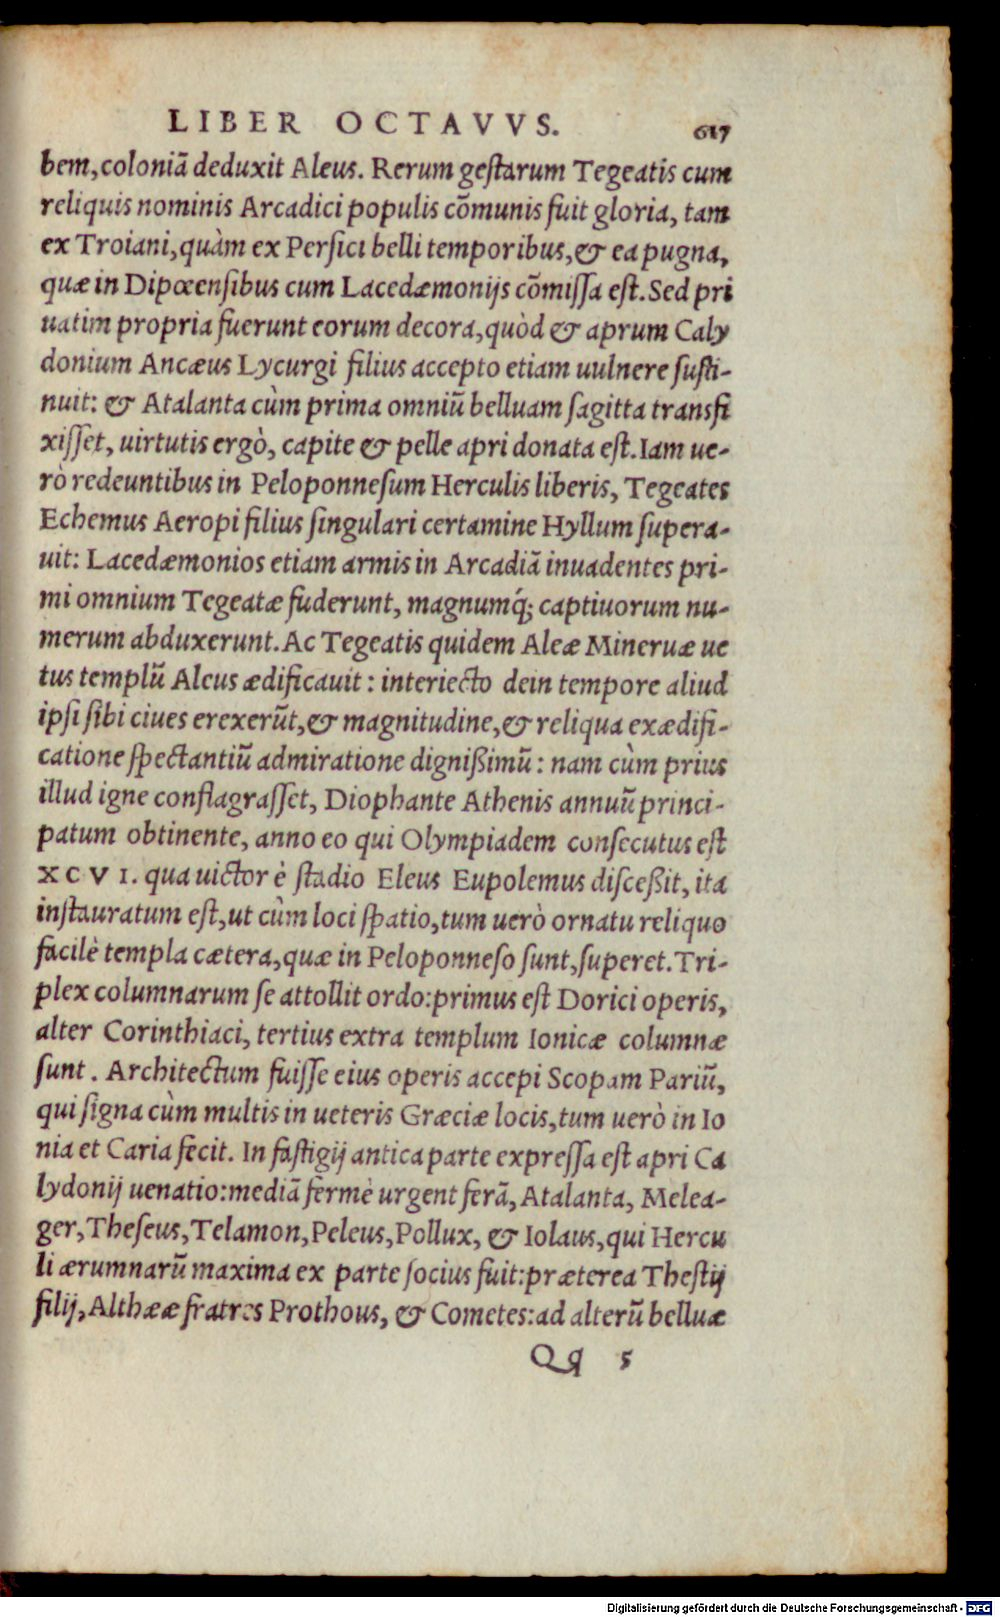 LIBER OCTAVVS. 617
bem, coloniā deduxit Aleus. Rerum gestarum Tegeatis cum
reliquis nominis Arcadici populis cōmunis fuit gloria, tam
ex Troiani, quàm ex Persici belli temporibus, & ea pugna,
quæ in Dipœensibus cum Lacedæmonijs cōmissa est. Sed pri
uatim propria fuerunt eorum decora, quòd & aprum Caly
donium Ancæus Lycurgi filius accepto etiam uulnere susti-
nuit: & Atalanta cùm prima omniū belluam sagitta transfi
xisset, uirtutis ergò, capite & pelle apri donata est. Iam ue-
rò redeuntibus in Peloponnesum Herculis liberis, Tegeates
Echemus Aeropi filius singulari certamine Hyllum supera-
uit: Lacedæmonios etiam armis in Arcadiā inuadentes pri-
mi omnium Tegeatæ fuderunt, magnumq́; captiuorum nu-
merum abduxerunt. Ac Tegeatis quidem Aleæ Mineruæ ue
tus templū Aleus ædificauit: interiecto dein tempore aliud
ipsi sibi ciues erexerūt, & magnitudine, & reliqua exædifi-
catione spectantiū admiratione dignißimū: nam cùm prius
illud igne conflagrasset, Diophante Athenis annuū princi-
patum obtinente, anno eo qui Olympiadem consecutus est
XCVI. qua uictor è stadio Eleus Eupolemus disceßit, ita
instauratum est, ut cùm loci spatio, tum uerò ornatu reliquo
facilè templa cætera, quæ in Peloponneso sunt, superet. Tri-
plex columnarum se attollit ordo: primus est Dorici operis,
alter Corinthiaci, tertius extra templum Ionicæ columnæ
sunt. Architectum fuisse eius operis accepi Scopam Pariū,
qui signa cùm multis in ueteris Græciæ locis, tum uerò in Io
nia et Caria fecit. In fastigij antica parte expressa est apri Ca
lydonij uenatio: mediā fermè urgent ferā, Atalanta, Melea-
ger, Theseus, Telamon, Peleus, Pollux, & Iolaus, qui Hercu
li ærumnarū maxima ex parte socius fuit: præterea Thestij
filij, Althææ fratres Prothous, & Cometes: ad alterū belluæ
Qq 5
Digitalisierung gefördert durch die Deutsche Forschungsgemeinschaft - DFG